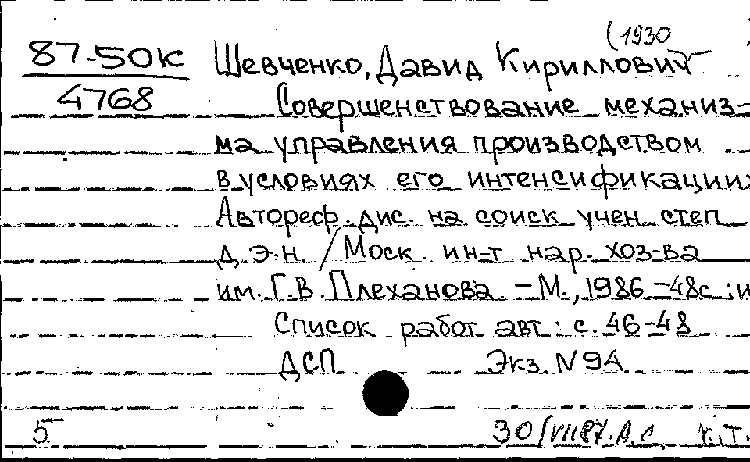 (1930
87-50к Шевченко, Давид Кириллович
4768 Совершенствование механиз-
ма управления производством
в условиях его интенсификации:
Автореф. дис. на соиск. учен. степ.
д.э.н. / Моск. ин-т нар. хоз-ва
им. Г.В. Плеханова. - М., 1986. -48с.; и
Список работ авт.: с. 46-48
ДСП Экз. N 94
5 30/VII87. К.Т.